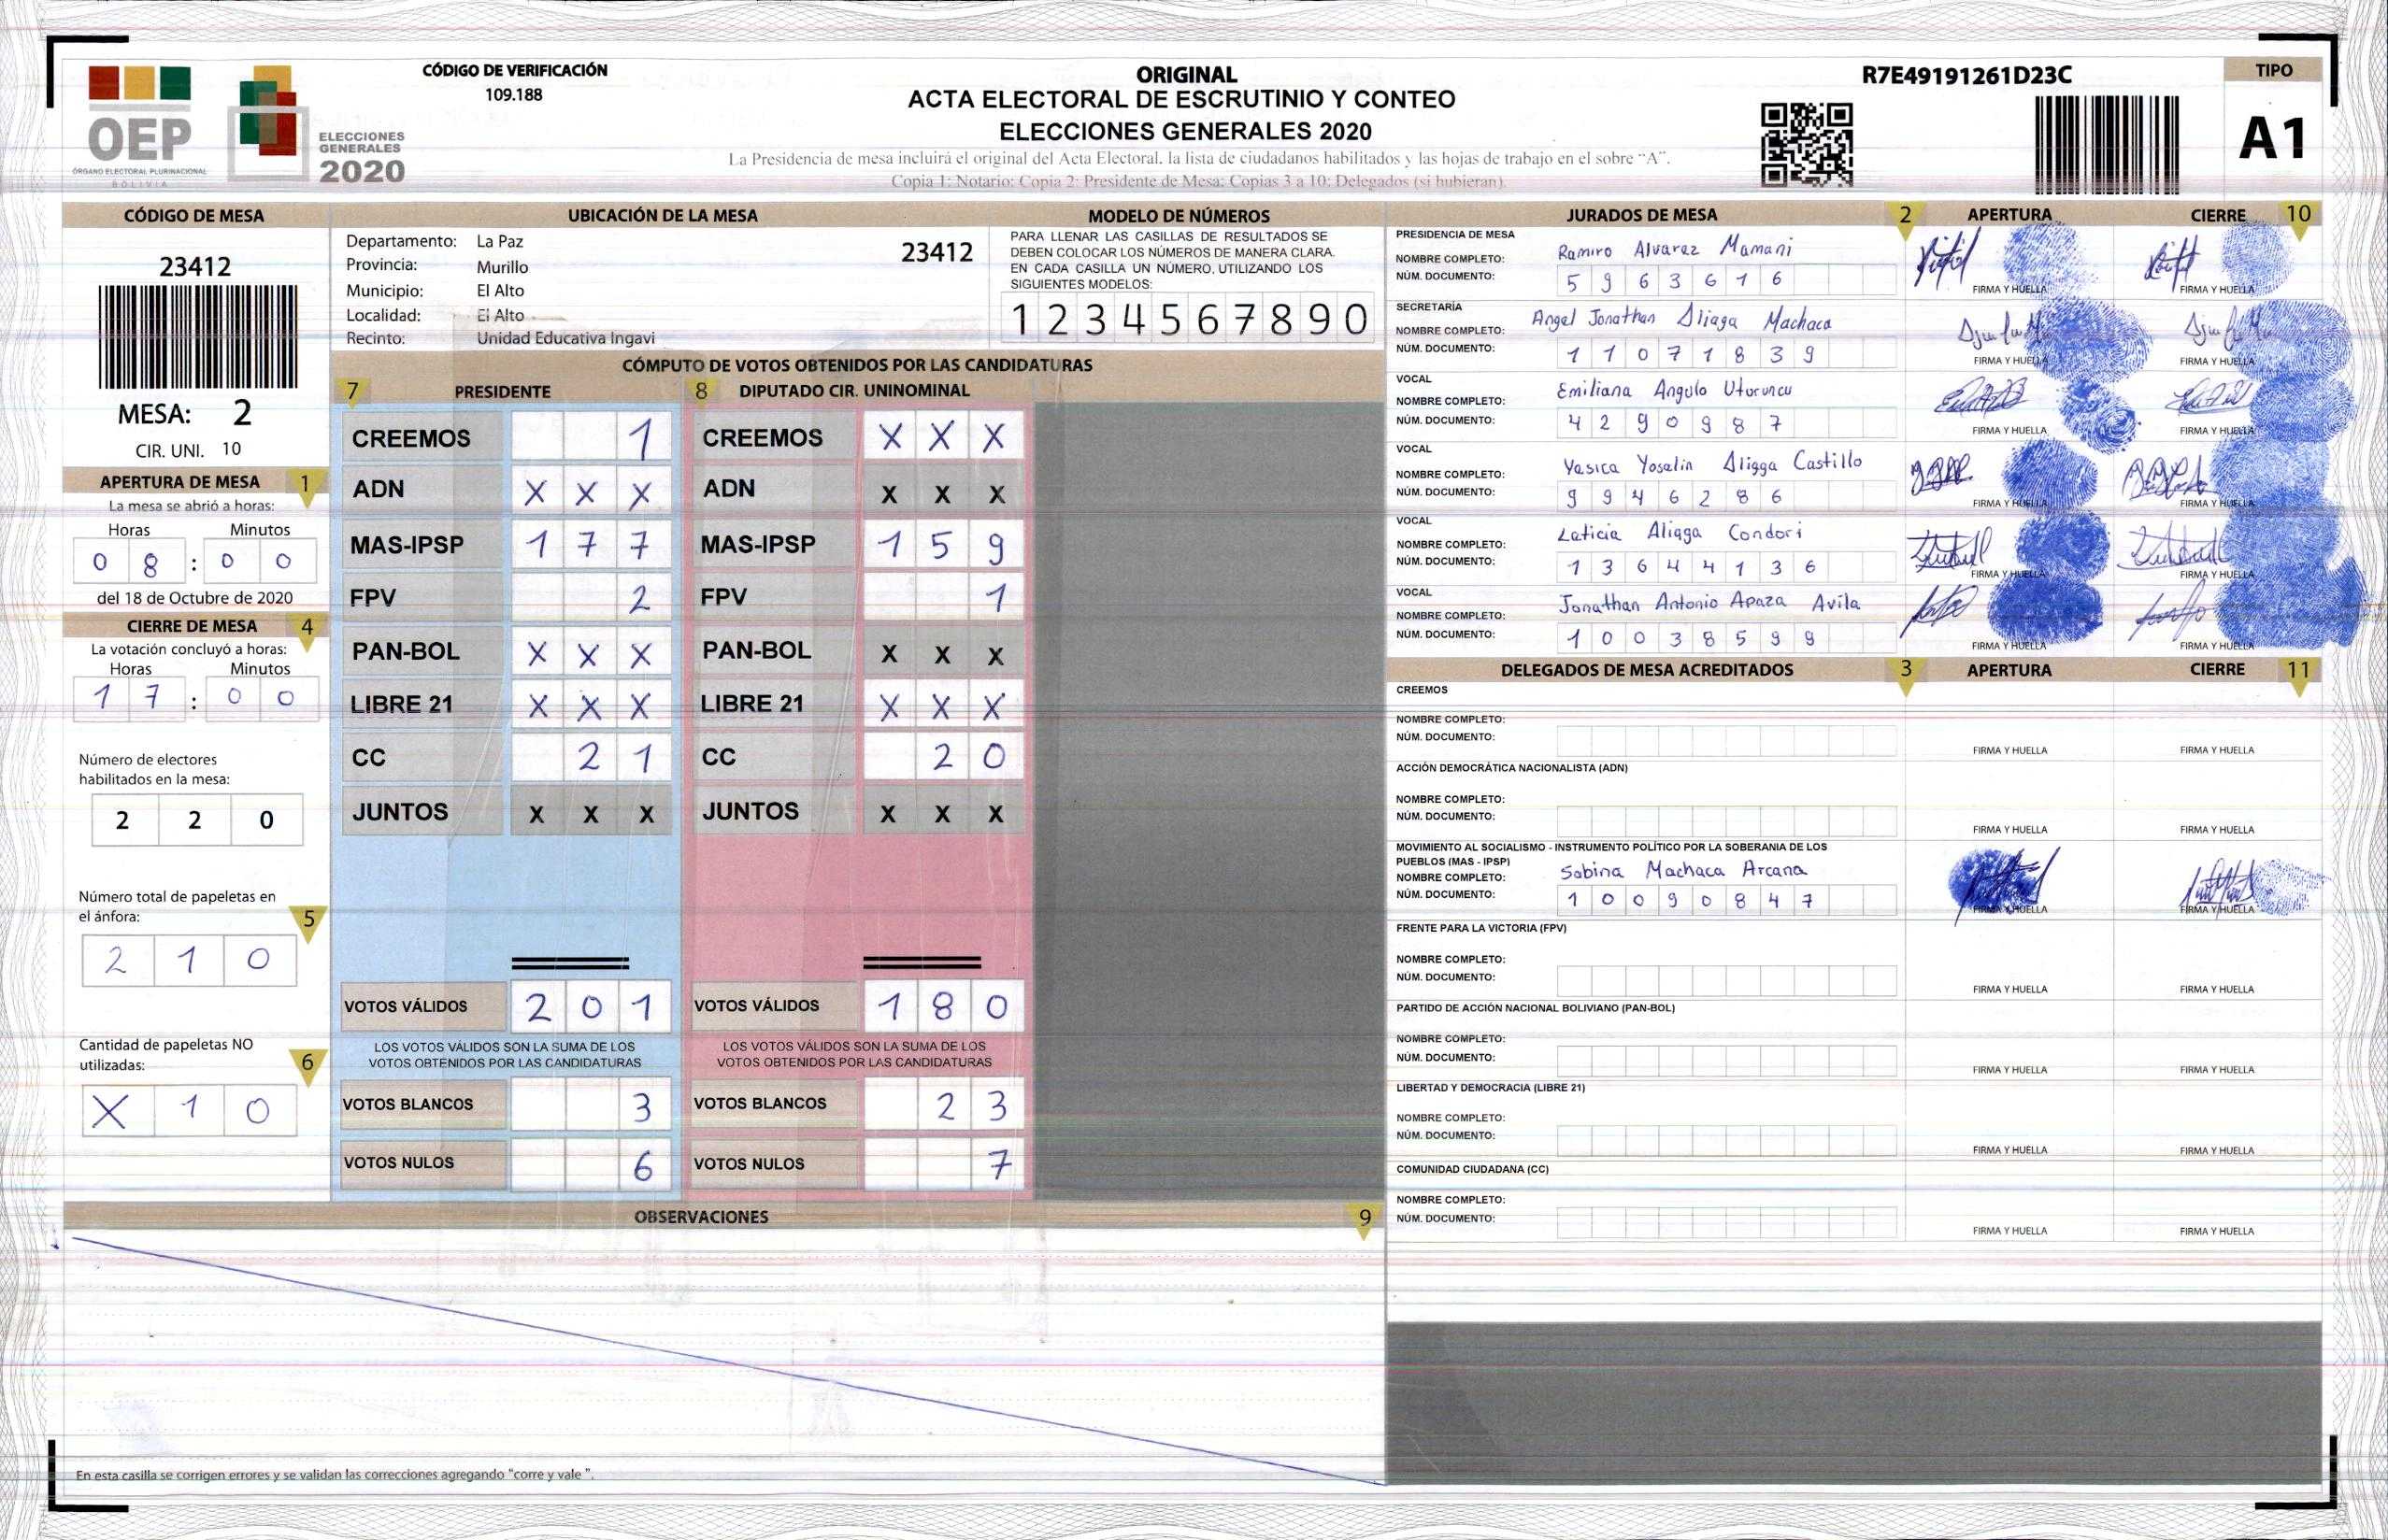 CÓDIGO DE VERIFICACIÓN
109.188
OEP
ÓRGANO ELECTORAL PLURINACIONAL
BOLIVIA
ELECCIONES
GENERALES
2020
ORIGINAL
ACTA ELECTORAL DE ESCRUTINIO Y CONTEO
ELECCIONES GENERALES 2020
La Presidencia de mesa incluirá el original del Acta Electoral, la lista de ciudadanos habilitados y las hojas de trabajo en el sobre "A".
Copia 1: Notario: Copia 2: Presidente de Mesa: Copias 3 a 10: Delegados (si hubieran).
R7E49191261D23C
TIPO
A1
CÓDIGO DE MESA
23412
MESA: 2
CIR. UNI. 10
APERTURA DE MESA 1
La mesa se abrió a horas:
Horas Minutos
0 8 : 0 0
del 18 de Octubre de 2020
CIERRE DE MESA 4
La votación concluyó a horas:
Horas Minutos
1 7 : 0 0
Número de electores
habilitados en la mesa:
2 2 0
Número total de papeletas en
el ánfora: 5
2 1 0
Cantidad de papeletas NO
utilizadas: 6
X 1 0
UBICACIÓN DE LA MESA
Departamento: La Paz 23412
Provincia: Murillo
Municipio: El Alto
Localidad: El Alto
Recinto: Unidad Educativa Ingavi
MODELO DE NÚMEROS
PARA LLENAR LAS CASILLAS DE RESULTADOS SE
DEBEN COLOCAR LOS NÚMEROS DE MANERA CLARA.
EN CADA CASILLA UN NÚMERO, UTILIZANDO LOS
SIGUIENTES MODELOS:
1 2 3 4 5 6 7 8 9 0
CÓMPUTO DE VOTOS OBTENIDOS POR LAS CANDIDATURAS
7 PRESIDENTE 8 DIPUTADO CIR. UNINOMINAL
CREEMOS 1 CREEMOS X X X
ADN X X X ADN X X X
MAS-IPSP 1 7 7 MAS-IPSP 1 5 9
FPV 2 FPV 1
PAN-BOL X X X PAN-BOL X X X
LIBRE 21 X X X LIBRE 21 X X X
CC 2 1 CC 2 0
JUNTOS X X X JUNTOS X X X
VOTOS VÁLIDOS 2 0 1 VOTOS VÁLIDOS 1 8 0
LOS VOTOS VÁLIDOS SON LA SUMA DE LOS LOS VOTOS VÁLIDOS SON LA SUMA DE LOS
VOTOS OBTENIDOS POR LAS CANDIDATURAS VOTOS OBTENIDOS POR LAS CANDIDATURAS
VOTOS BLANCOS 3 VOTOS BLANCOS 2 3
VOTOS NULOS 6 VOTOS NULOS 7
OBSERVACIONES 9
En esta casilla se corrigen errores y se validan las correcciones agregando "corre y vale ".
JURADOS DE MESA 2 APERTURA CIERRE 10
PRESIDENCIA DE MESA
NOMBRE COMPLETO: Ramiro Alvarez Mamani
NÚM. DOCUMENTO: 5 9 6 3 6 1 6
FIRMA Y HUELLA FIRMA Y HUELLA
SECRETARÍA
NOMBRE COMPLETO: Angel Jonathan Aliaga Machaca
NÚM. DOCUMENTO: 1 1 0 7 1 8 3 9
FIRMA Y HUELLA FIRMA Y HUELLA
VOCAL
NOMBRE COMPLETO: Emiliana Angulo Utoruncu
NÚM. DOCUMENTO: 4 2 9 0 9 8 7
FIRMA Y HUELLA FIRMA Y HUELLA
VOCAL
NOMBRE COMPLETO: Yasica Yoselin Aliaga Castillo
NÚM. DOCUMENTO: 9 9 4 6 2 8 6
FIRMA Y HUELLA FIRMA Y HUELLA
VOCAL
NOMBRE COMPLETO: Leticia Aliaga Condori
NÚM. DOCUMENTO: 1 3 6 4 4 1 3 6
FIRMA Y HUELLA FIRMA Y HUELLA
VOCAL
NOMBRE COMPLETO: Jonathan Antonio Apaza Avila
NÚM. DOCUMENTO: 1 0 0 3 8 5 9 9
FIRMA Y HUELLA FIRMA Y HUELLA
DELEGADOS DE MESA ACREDITADOS 3 APERTURA CIERRE 11
CREEMOS
NOMBRE COMPLETO:
NÚM. DOCUMENTO:
FIRMA Y HUELLA FIRMA Y HUELLA
ACCIÓN DEMOCRÁTICA NACIONALISTA (ADN)
NOMBRE COMPLETO:
NÚM. DOCUMENTO:
FIRMA Y HUELLA FIRMA Y HUELLA
MOVIMIENTO AL SOCIALISMO - INSTRUMENTO POLÍTICO POR LA SOBERANIA DE LOS
PUEBLOS (MAS - IPSP)
NOMBRE COMPLETO: Sabina Machaca Arcana
NÚM. DOCUMENTO: 1 0 0 9 0 8 4 7
FIRMA Y HUELLA FIRMA Y HUELLA
FRENTE PARA LA VICTORIA (FPV)
NOMBRE COMPLETO:
NÚM. DOCUMENTO:
FIRMA Y HUELLA FIRMA Y HUELLA
PARTIDO DE ACCIÓN NACIONAL BOLIVIANO (PAN-BOL)
NOMBRE COMPLETO:
NÚM. DOCUMENTO:
FIRMA Y HUELLA FIRMA Y HUELLA
LIBERTAD Y DEMOCRACIA (LIBRE 21)
NOMBRE COMPLETO:
NÚM. DOCUMENTO:
FIRMA Y HUELLA FIRMA Y HUELLA
COMUNIDAD CIUDADANA (CC)
NOMBRE COMPLETO:
NÚM. DOCUMENTO:
FIRMA Y HUELLA FIRMA Y HUELLA